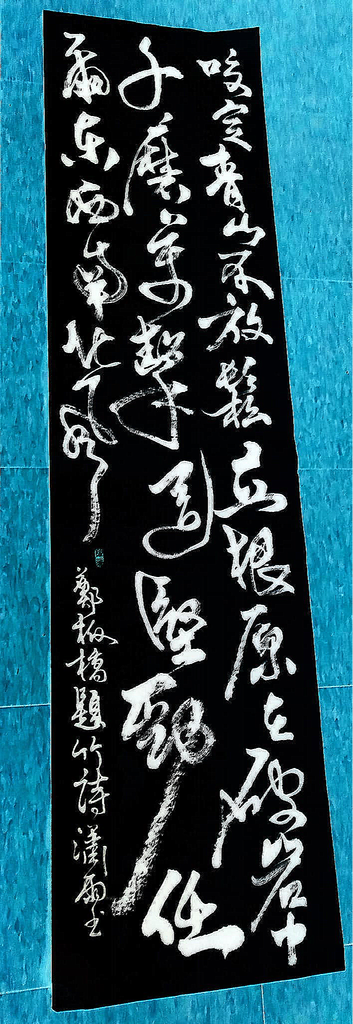 咬定青山不放鬆立根原在破岩中
千磨萬擊還堅勁任
爾東西南北風
鄭板橋題竹詩瀟雨书